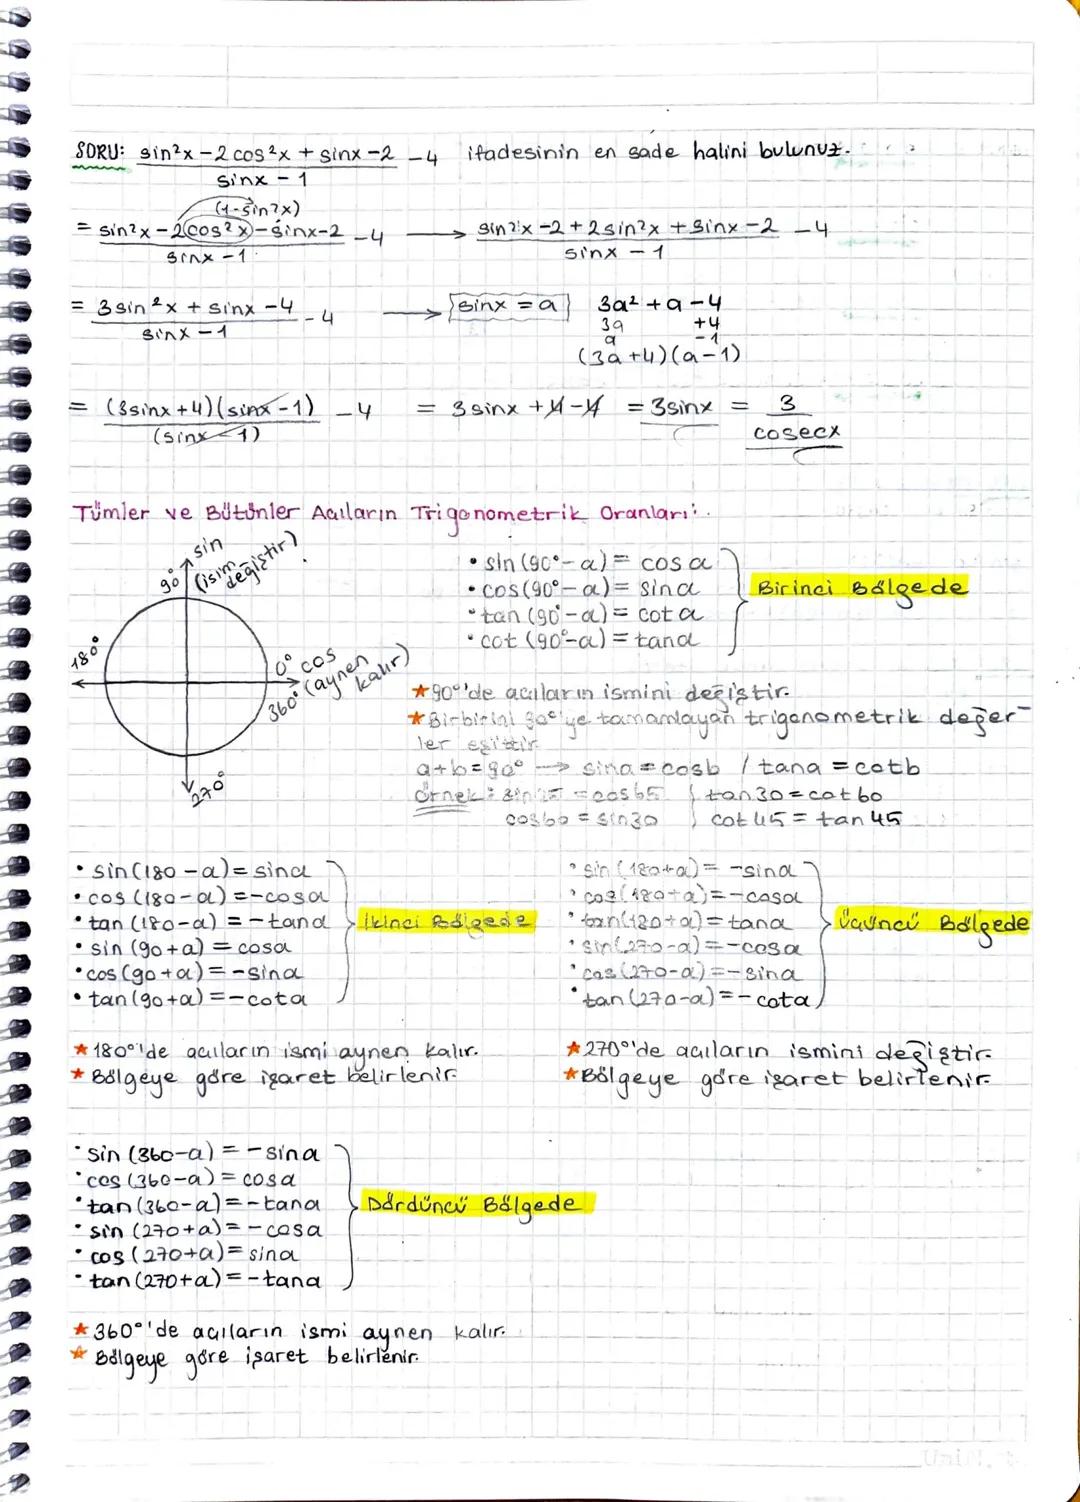 SORU: sin²x - 2cos²x + sinx - 2 / sinx - 1 - 4 ifadesinin en sade halini bulunuz.
(1-sin²x)
= sin²x - 2cos²x - sinx - 2 / sinx - 1 - 4 → sin²x - 2 + 2sin²x + sinx - 2 / sinx - 1 - 4
= 3sin²x + sinx - 4 / sinx - 1 - 4 → sinx = a 3a² + a - 4
3a +4
a -1
(3a+4)(a-1)
= (3sinx+4)(sinx-1) / (sinx-1) - 4 = 3sinx + 4 - 4 = 3sinx = 3 / cosecx
Tümler ve Bütünler Açıların Trigonometrik Oranları:
sin
90° (isim değiştir)
180°
0° cos
360° (aynen kalır)
270°
• sin(90°-α) = cosα
• cos(90°-α) = sinα
• tan(90°-α) = cotα
• cot(90°-α) = tanα
Birinci Bölgede
★90°'de açıların ismini değiştir.
★Birbirini 90°'ye tamamlayan trigonometrik değer-
ler eşittir.
a+b=90° → sina = cosb / tana = cotb
Örnek: sin25 = cos65 tan30 = cot60
cos60 = sin30 cot45 = tan45
• sin(180-α) = sinα
• cos(180-α) = -cosα
• tan(180-α) = -tanα
• sin(90+α) = cosα
• cos(90+α) = -sinα
• tan(90+α) = -cotα
İkinci Bölgede
• sin(180+α) = -sinα
• cos(180+α) = -cosα
• tan(180+α) = tanα
• sin(270-α) = -cosα
• cos(270-α) = -sinα
• tan(270-α) = -cotα
Üçüncü Bölgede
★180°'de açıların ismi aynen kalır.
★Bölgeye göre işaret belirlenir.
★270°'de açıların ismini değiştir.
★Bölgeye göre işaret belirlenir.
• sin(360-α) = -sinα
• cos(360-α) = cosα
• tan(360-α) = -tanα
• sin(270+α) = -cosα
• cos(270+α) = sinα
• tan(270+α) = -tanα
Dördüncü Bölgede
★360°'de açıların ismi aynen kalır.
★Bölgeye göre işaret belirlenir.